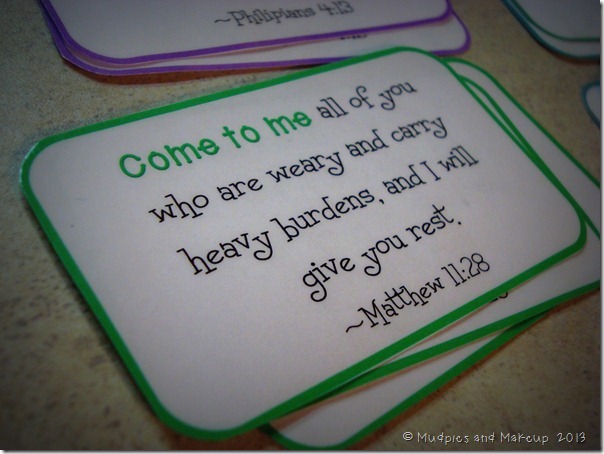 ~Philipians 4:13
Come to me all of you
who are weary and carry
heavy burdens, and I will
give you rest.
~Matthew 11:28
© Mudpies and Makeup 2013